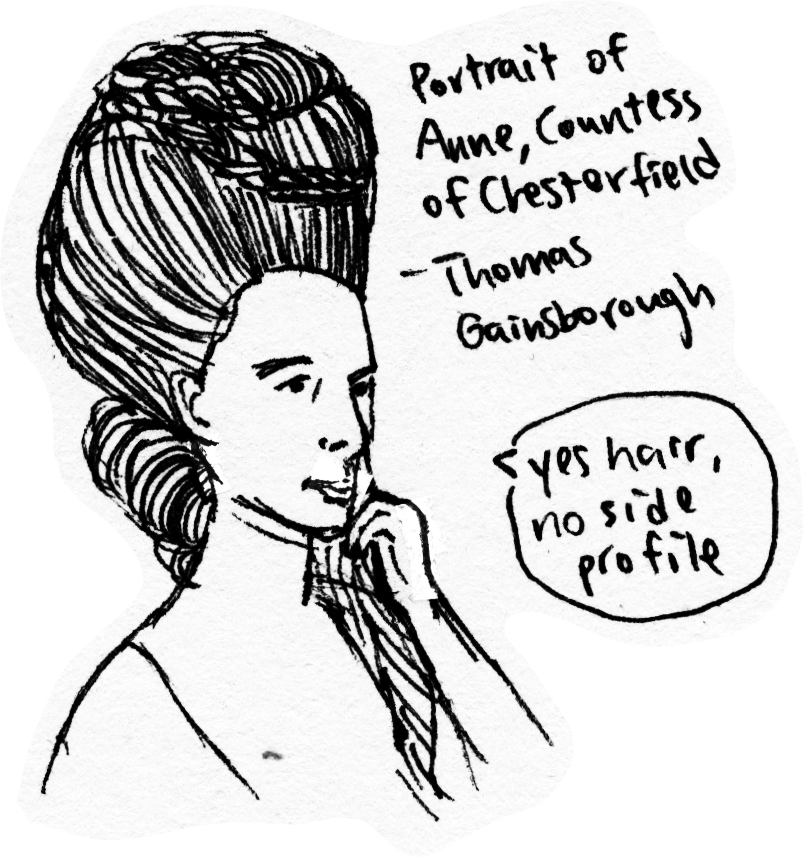 Portrait of
Anne, Countess
of Chesterfield
- Thomas
Gainsborough
yes hair,
no side
profile